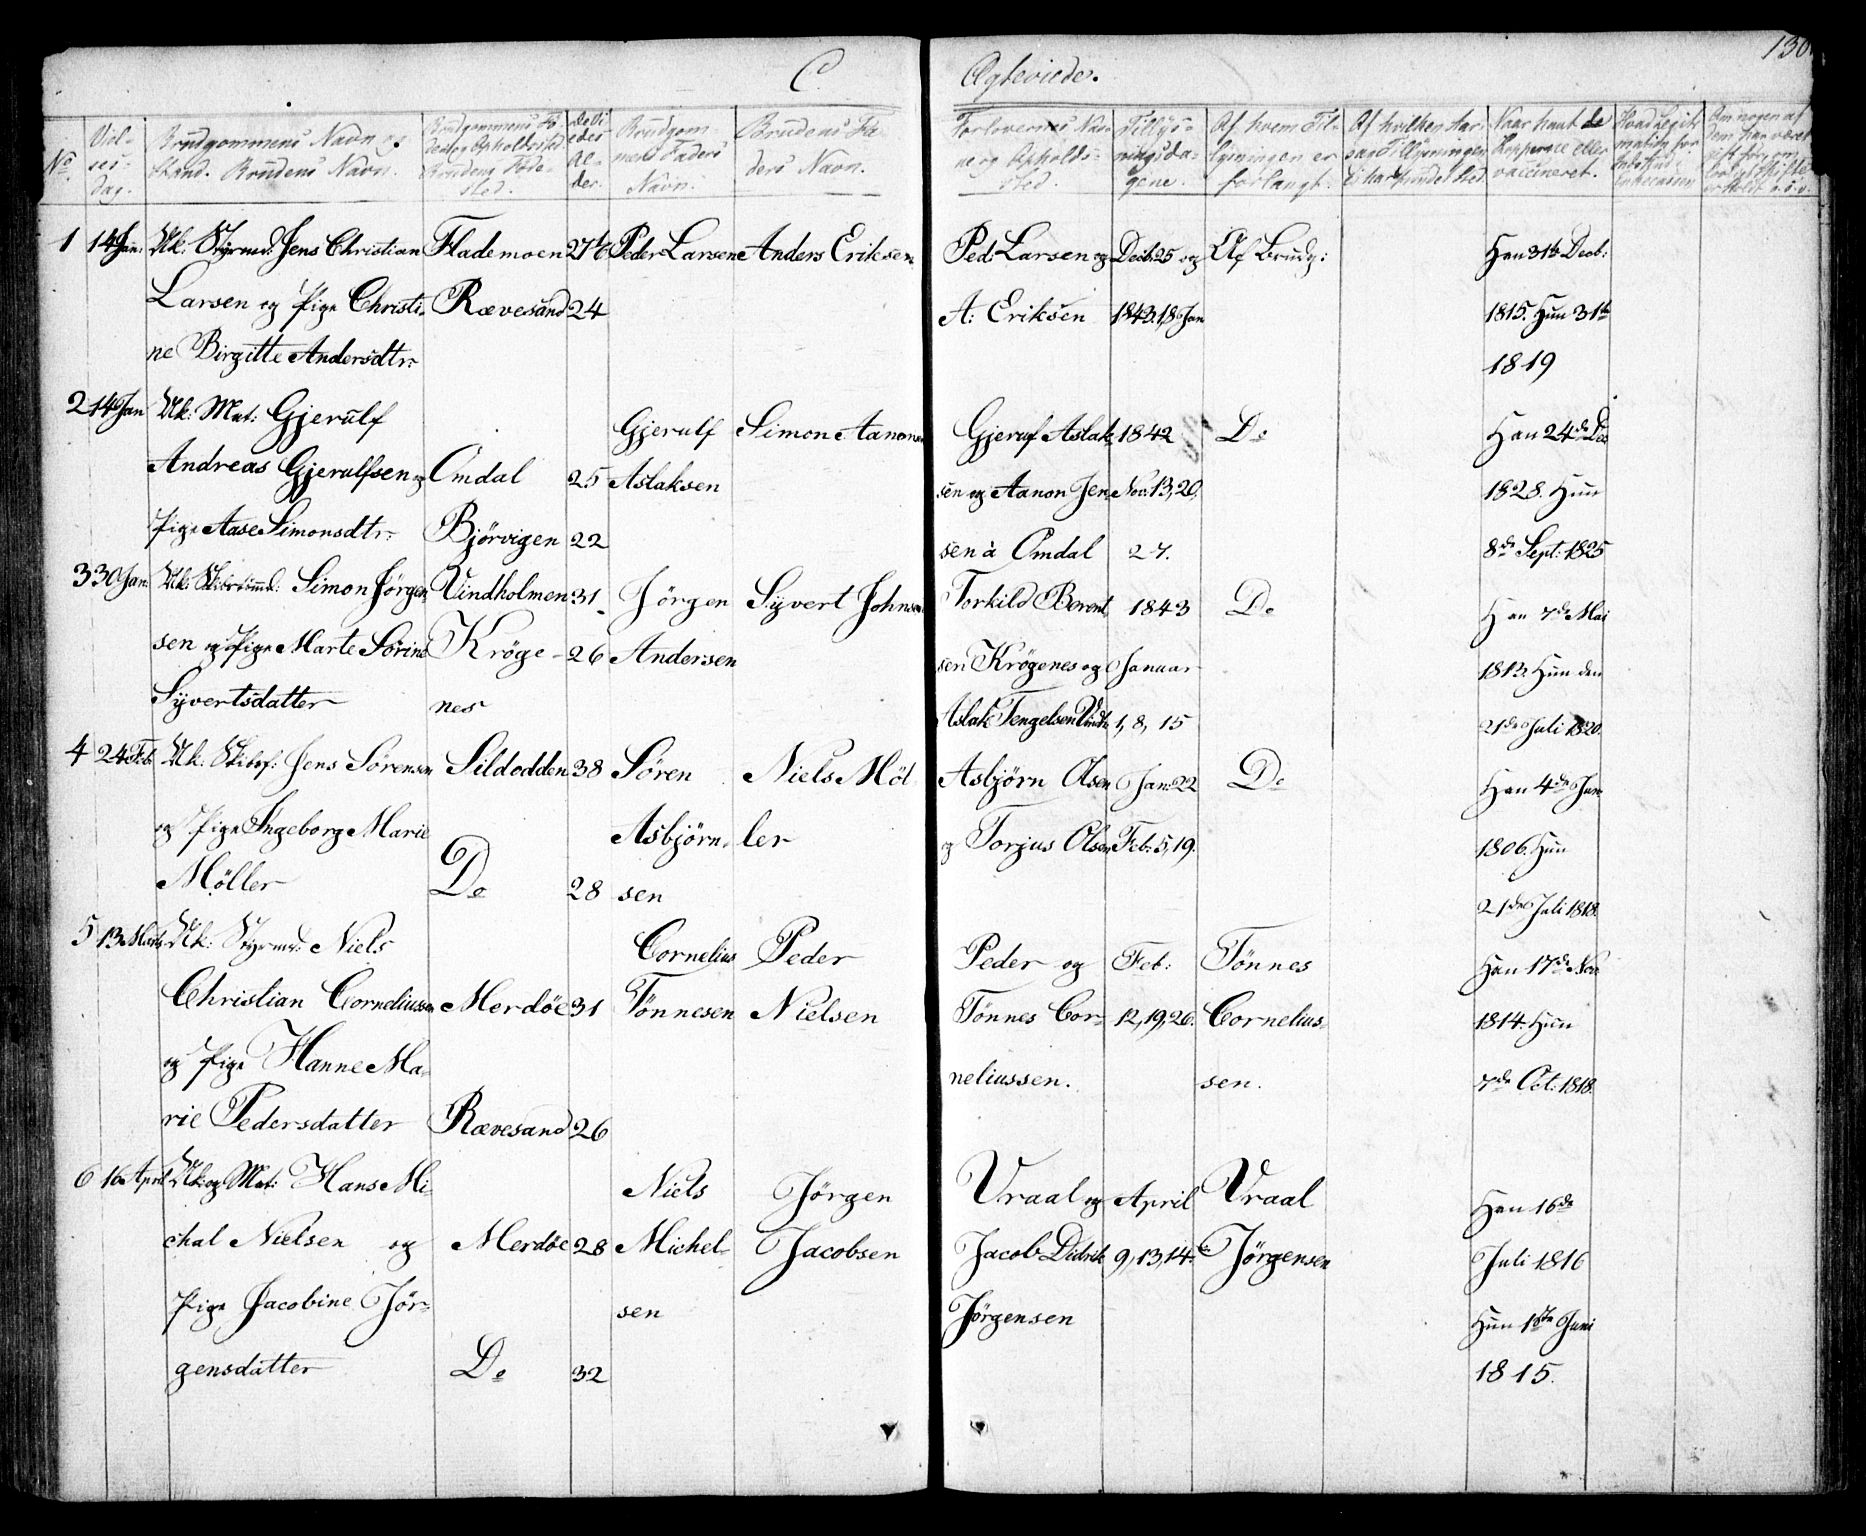 C. Ægteviede. 130
No. Vielsesdag. Brudgommens Navn og Stand. Brudens Navn. Brudgommens Føde- og Opholdssted. Brudens Fødested. De Viedes Alder. Brudgommens Faders Navn. Brudens Faders Navn. Forlovernes Navne og Opholdssted. Tillysningsdagene. Af hvem Tillysningen er forlangt.
Naar havt de Kopperne eller vaccineret.
1 14 Jan: Uk: Styrmd: Jens Christian Flademoen 27½ Peder Larsen Anders Eriksen Ped: Larsen og Decb. 25 og Af Brudg: Han 31te Decb:
Larsen og Pige Christi- Rævesand 24 A: Eriksen 1843. 1, 8 Jan 1815. Hun 31te
ne Birgitte Andersdtr: 1819
2 14 Jan Uk: Mat: Gjerulf Gjerulf Simon Aanonsen Gjeruf Aslak- 1842 Do Han 24de Dec
Andreas Gjerulfsen og Omdal 25 Aslaksen sen og Aanon Jen- Nov: 13, 20, 1828. Hun
Pige Aase Simonsdtr: Bjørvigen 22 sen à Omdal 27. 8de Sept: 1825
3 30 Jan: Uk: Skibstømmd: Simon Jørgen- Vindholmen 31 Jörgen Syvert Johnsen Torkild Berent- 1843 Do Han 7de Mai
sen og Pige Marte Sörine Kröge- 26 Andersen sen Krögenes og Januar 1813. Hun den
Syvertsdatter nes Aslak Tengelsen Vindh: 1, 8, 15 21de Juli 1820.
4 24 Feb: Uk: Skibsf: Jens Sörensen Sildodden 38 Sören Niels Möl- Asbjörn Olsen Jan: 22 Do Han 4de Jan
og Pige Ingeborg Marie Asbjörn- ler og Torjus Olsen Feb: 5, 19. 1806. Hun
Møller Do 28 sen 21de Juli 1818.
5 13 Marts Uk: Styrmd: Niels Cornelius Peder Peder og Feb: Tönnes Han 17de Nov
Christian Corneliussen Merdöe 31 Tönnesen Nielsen Tönnes Cor- 12, 19, 26. Cornelius- 1814. Hun
og Pige Hanne Ma- neliussen. sen. 7de Oct: 1818.
rie Pedersdatter Rævesand 26
6 16 April Uk: og Mat: Hans Mi- Niels Jörgen Vraal og April Vraal Han 16de
chal Nielsen og Merdöe 28 Michel- Jacobsen Jacob Didrik 9, 13, 14. Jörgensen Juli 1816
Pige Jacobine Jör- sen Jörgensen Hun 18de Juni
gensdatter Do 32 1815.